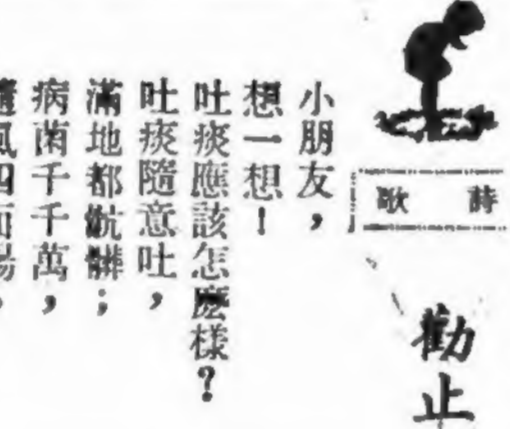 詩歌
勸止
小朋友，
想一想！
吐痰應該怎麼樣？
吐痰隨意吐，
滿地都骯髒；
病菌千千萬，
隨風四面揚，